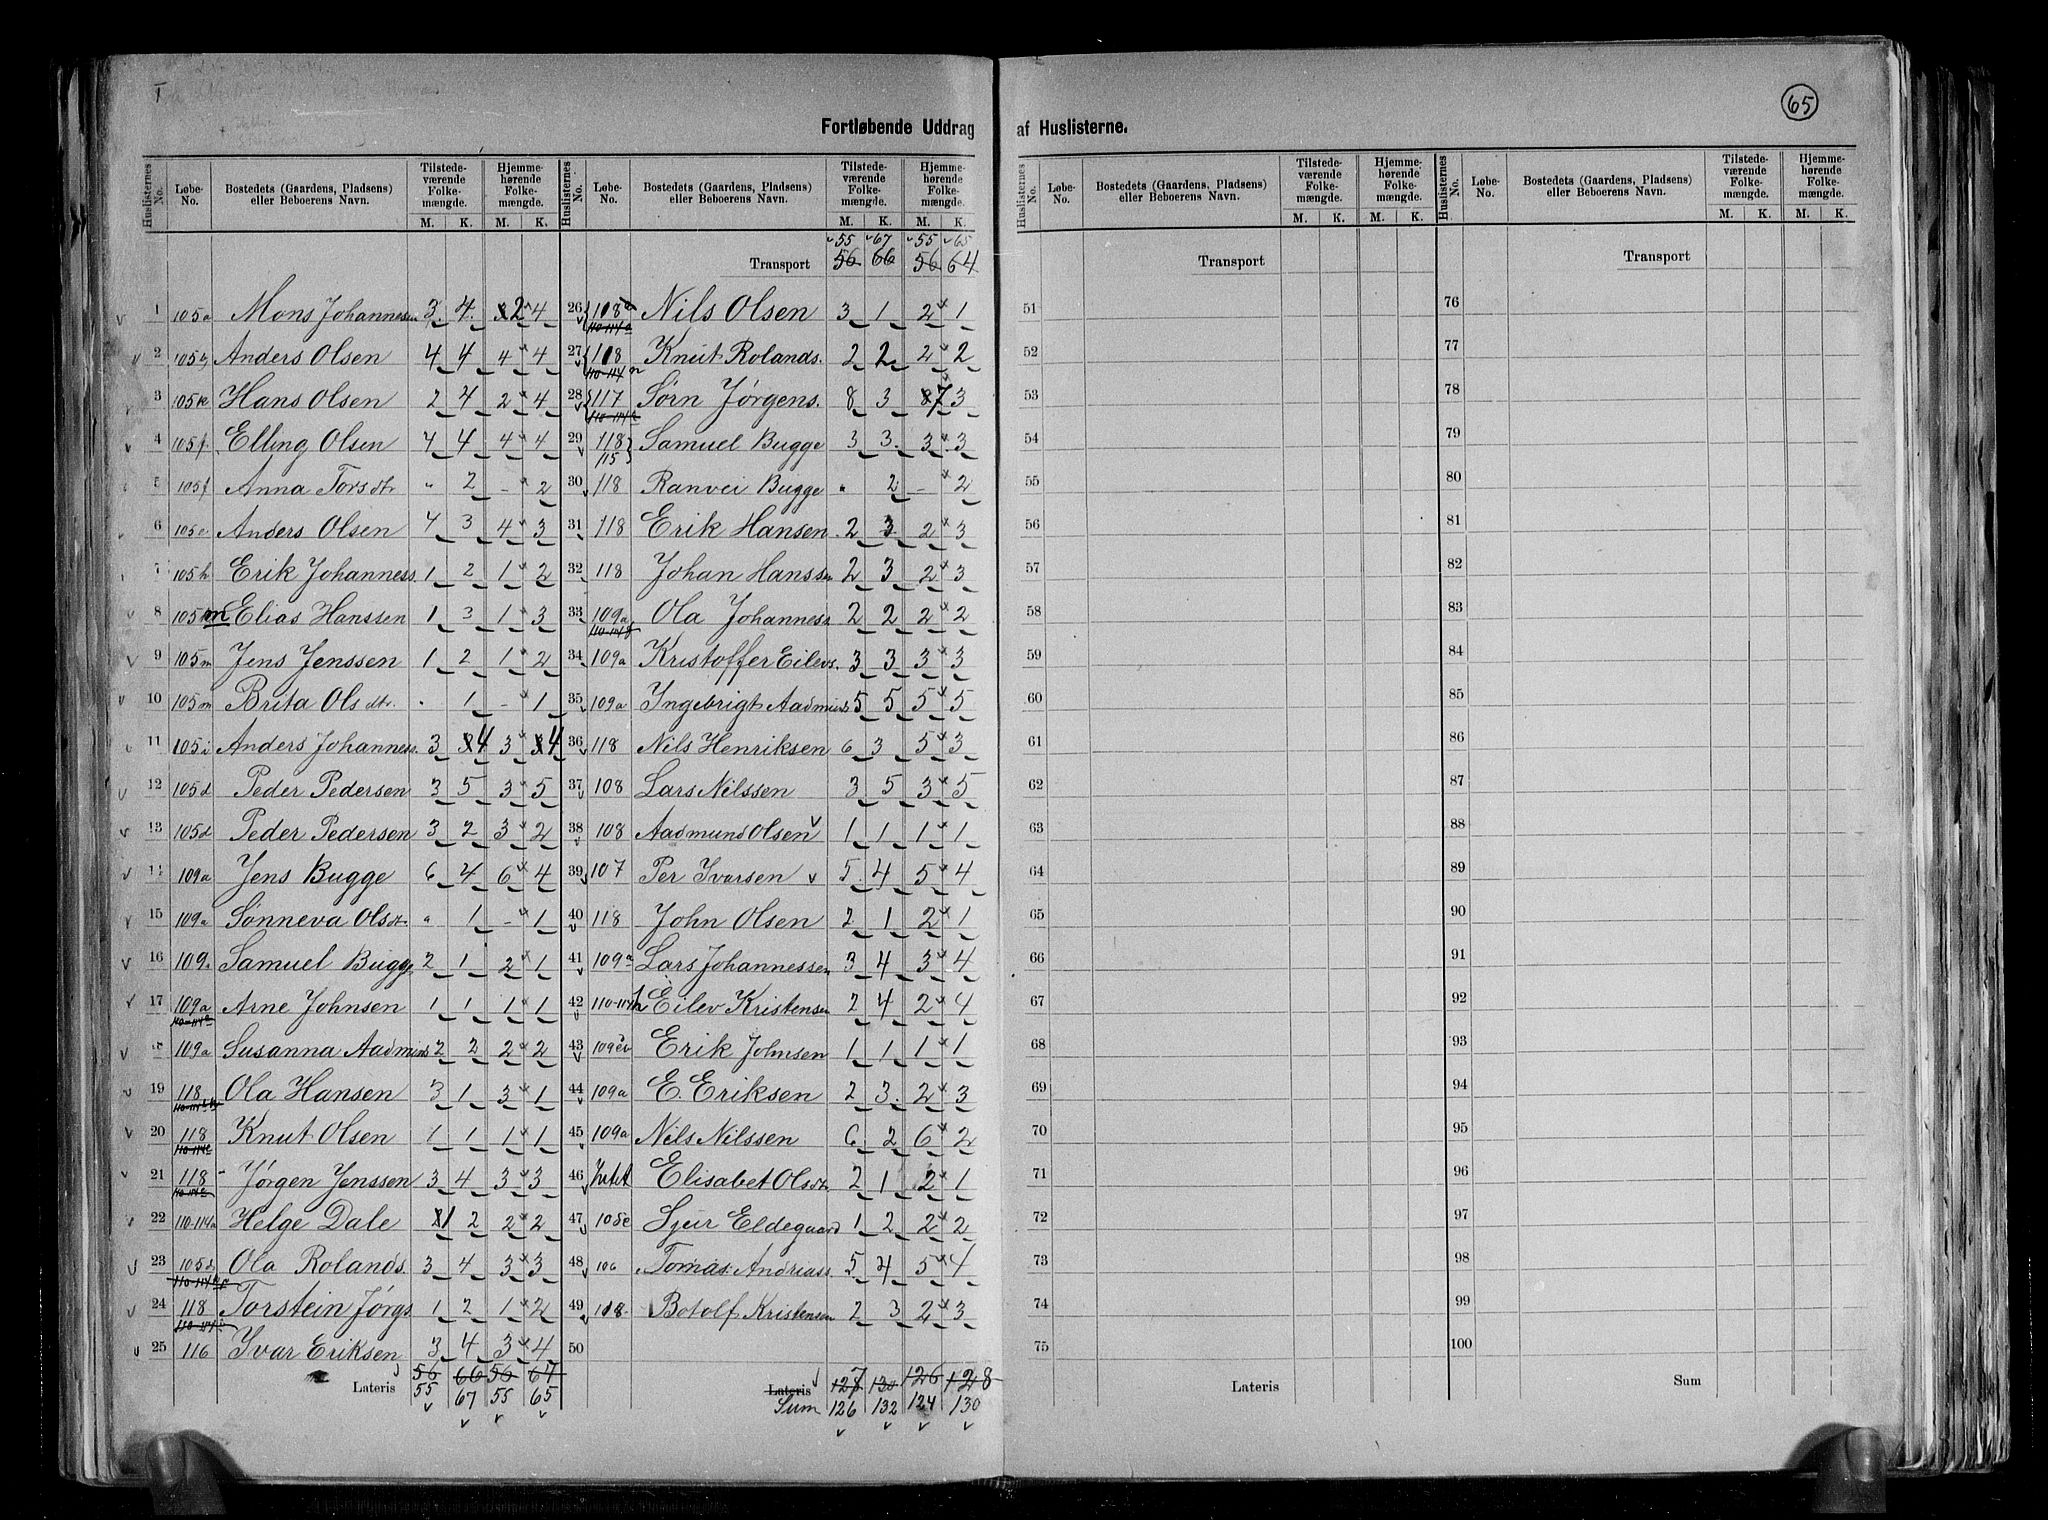 65
Fortløbende Uddrag af Huslisterne.
Huslisternes No. Løbe-No. Bostedets (Gaardens, Pladsens) eller Beboerens Navn. Tilstedeværende Folkemængde. M. K. Hjemmehørende Folkemængde. M. K.
1 105a Mons Johannesen 3 4 2 4
2 105b Anders Olsen 4 4 4 4
3 105k Hans Olsen 2 4 2 4
4 105f Elling Olsen 4 4 4 4
5 105f Anna Torsdtr " 2 - 2
6 105e Anders Olsen 4 3 4 3
7 105h Erik Johanness. 1 2 1 2
8 105m Elias Hanssen 1 3 1 3
9 105m Jens Jenssen 1 2 1 2
10 105m Brita Olsdtr. " 1 - 1
11 105i Anders Johanness. 3 4 3 4
12 105d Peder Pedersen 3 5 3 5
13 105d Peder Pedersen 3 2 3 2
14 109a Jens Bugge 6 4 6 4
15 109a Sønneva Olsdtr. " 1 - 1
16 109a Samuel Bugge 2 1 2 1
17 109a Arne Johnsen 1 1 1 1
18 109a Susanna Aadmunds 2 2 2 2
19 118 Ola Hansen 3 1 3 1
20 118 Knut Olsen 1 1 1 1
21 118 Jørgen Jenssen 3 4 3 3
22 110-114a Helge Dale 1 2 2 2
23 105d Ola Rolands. 3 4 3 3
24 118 Torstein Jørgs. 1 2 1 2
25 116 Ivar Eriksen 3 4 3 4
56 66 56 67
Lateris 55 67 55 65
Huslisternes No. Løbe-No. Bostedets (Gaardens, Pladsens) eller Beboerens Navn. Tilstedeværende Folkemængde. M. K. Hjemmehørende Folkemængde. M. K.
55 67 55 65
Transport 56 66 56 64
26 118a Nils Olsen 3 1 2 1
27 118 Knut Rolands. 2 2 2 2
28 117 Sørn Jørgens. 8 3 7 3
29 118 115 Samuel Bugge 3 3 3 3
30 118 Ranvei Bugge " 2 - 2
31 118 Erik Hansen 2 3 2 3
32 118 Johan Hanssen 2 3 2 3
33 109a Ola Johanness. 2 2 2 2
34 109a Kristoffer Eilevs. 3 3 3 3
35 109a Ingebrigt Aadmunds 5 5 5 5
36 118 Nils Henriksen 6 3 5 3
37 108 Lars Nilssen 3 5 3 5
38 108 Aadmund Olsen 1 1 1 1
39 107 Per Ivarsen 5 4 5 4
40 118 John Olsen 2 1 2 1
41 109a Lars Johannessen 3 4 3 4
42 110-114h Eilev Kristensen 2 4 2 4
43 Erik Johnsen 1 1 1 1
44 109a E. Eriksen 2 3 2 3
45 109a Nils Nilssen 6 2 6 2
46 Elisabet Olsdtr. 2 1 2 1
47 105c Sjur Eldegaard 1 2 2 2
48 106 Tomas Andreass. 5 4 5 4
49 118 Botolf Kristensen 2 3 2 3
50
Lateris 127 130 126 128
Sum 126 132 124 130
Huslisternes No. Løbe-No. Bostedets (Gaardens, Pladsens) eller Beboerens Navn. Tilstedeværende Folkemængde. M. K. Hjemmehørende Folkemængde. M. K.
Transport
51
52
53
54
55
56
57
58
59
60
61
62
63
64
65
66
67
68
69
70
71
72
73
74
75
Lateris
Huslisternes No. Løbe-No. Bostedets (Gaardens, Pladsens) eller Beboerens Navn. Tilstedeværende Folkemængde. M. K. Hjemmehørende Folkemængde. M. K.
Transport
76
77
78
79
80
81
82
83
84
85
86
87
88
89
90
91
92
93
94
95
96
97
98
99
100
Sum